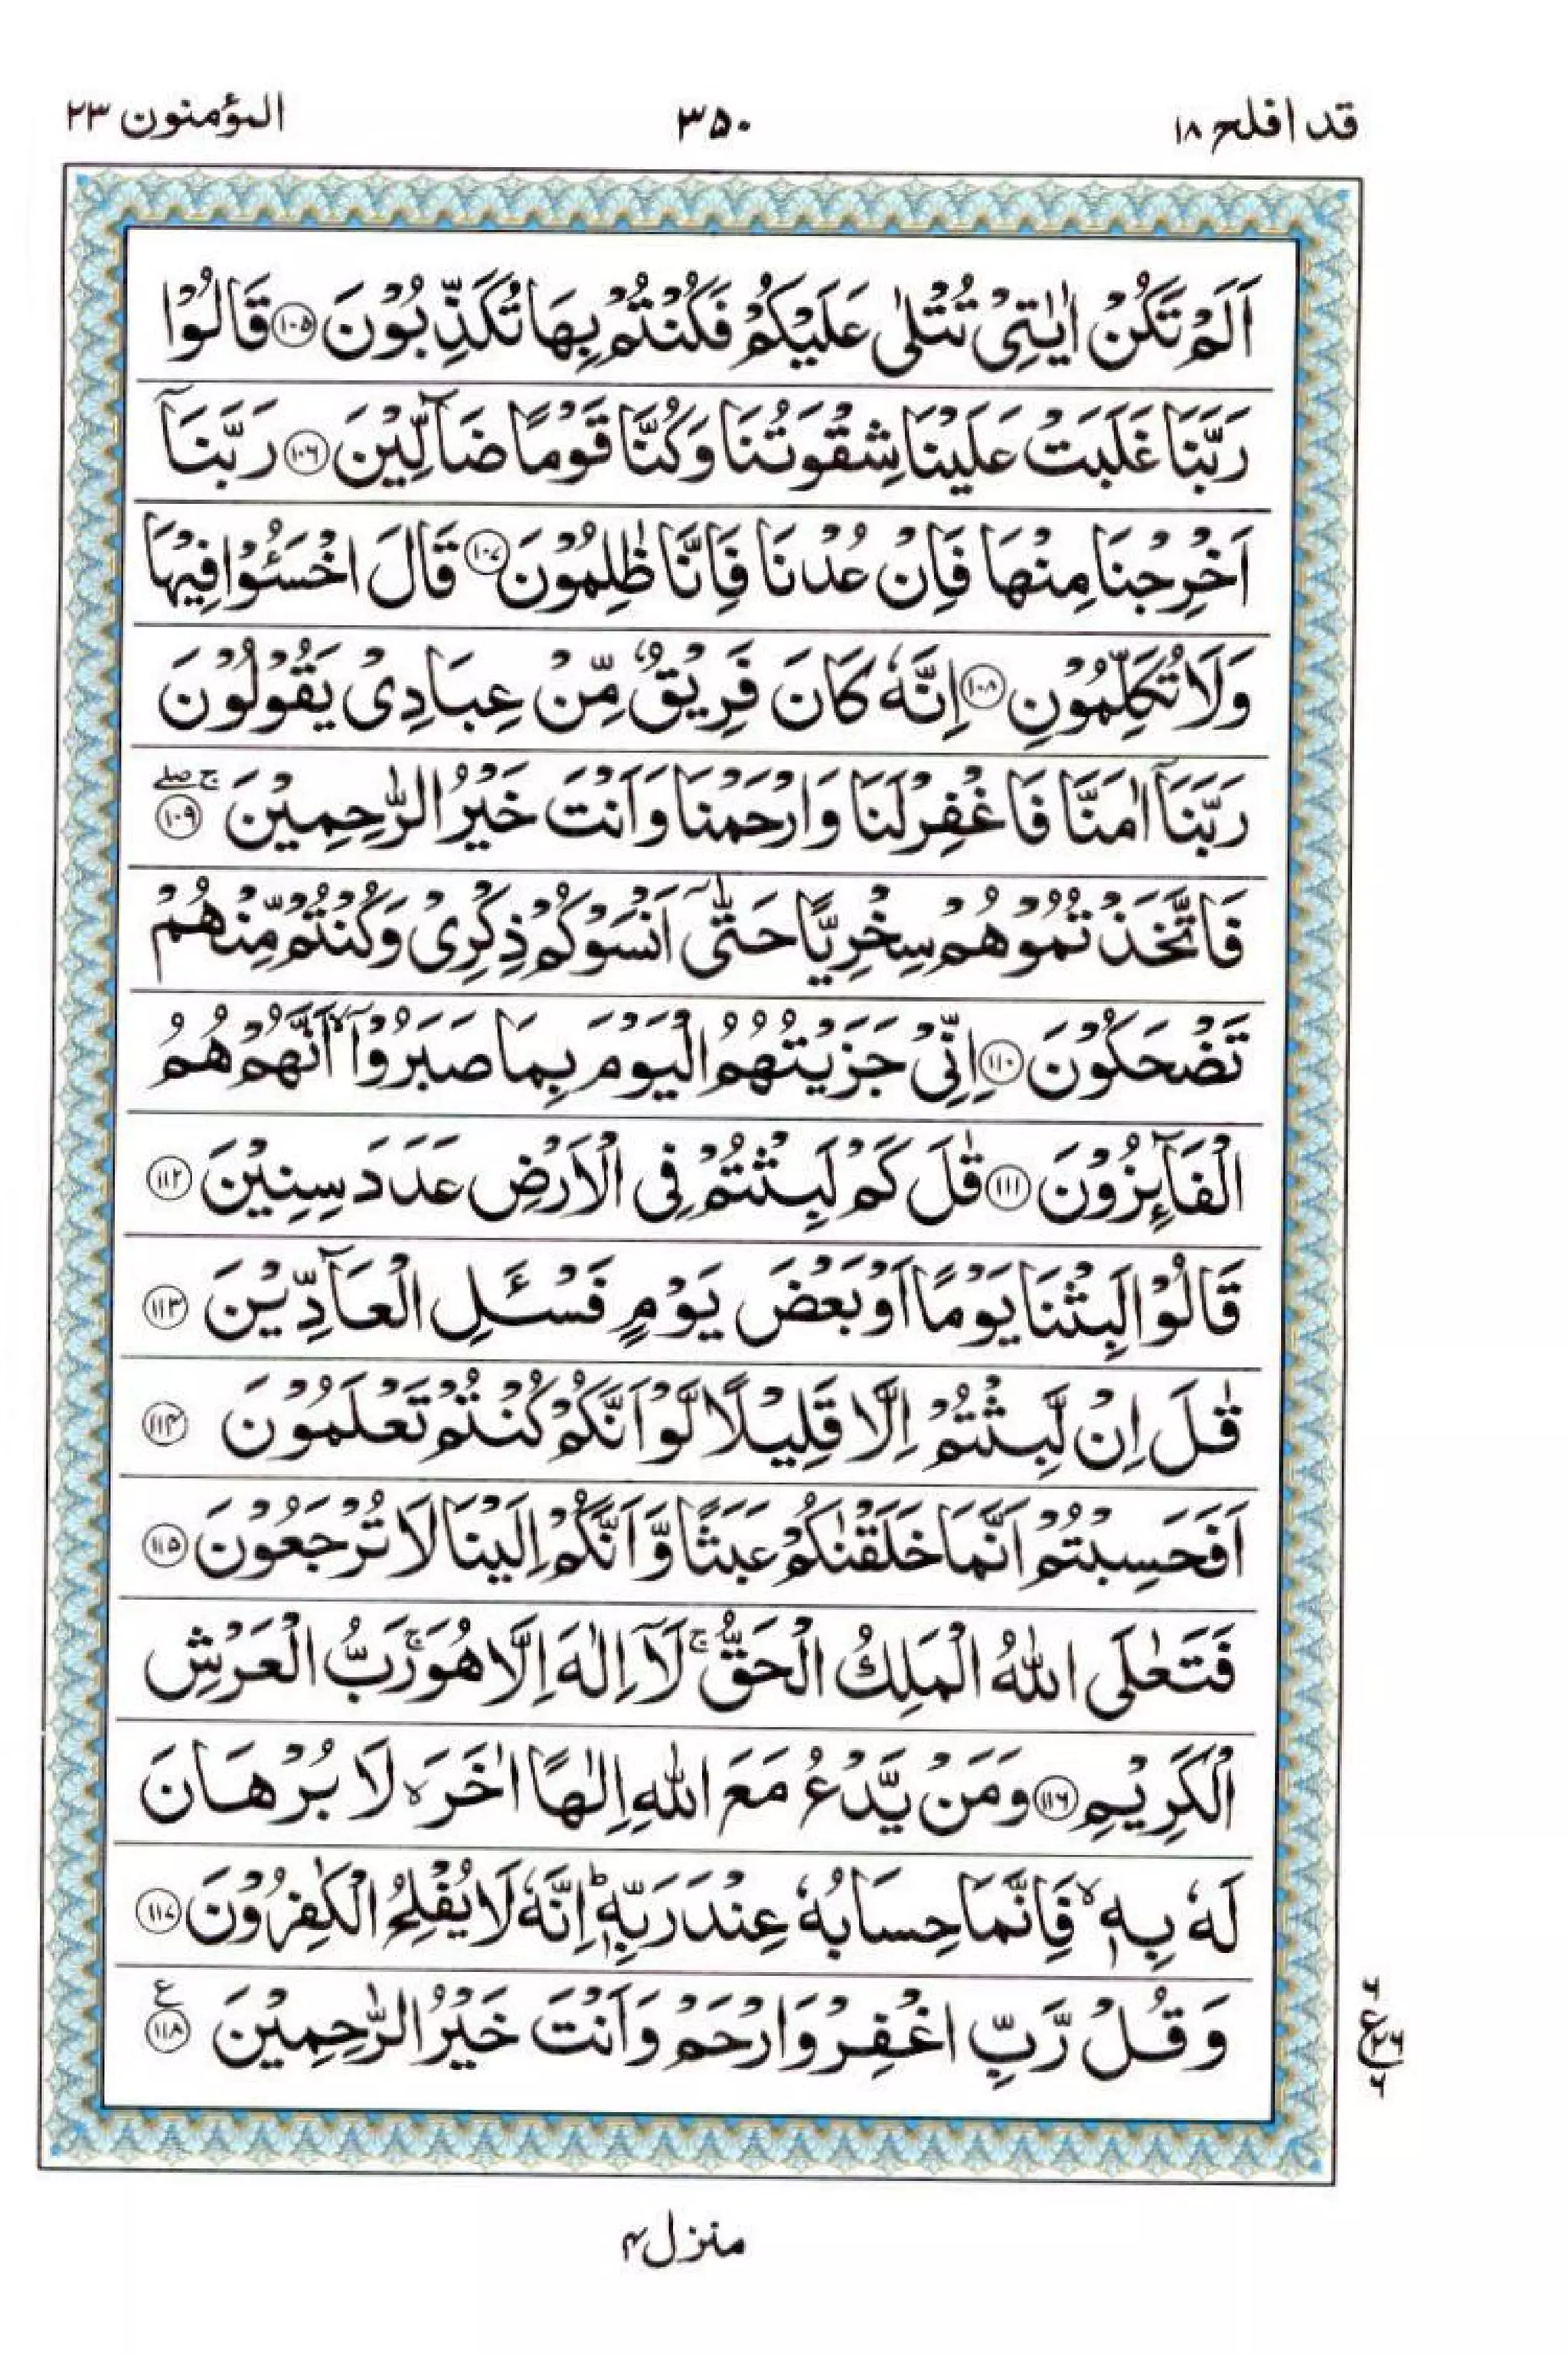 قد افلح ١٨
٣٥٠
المؤمنون ٢٣
اَلَمْ تَكُنْ اٰيٰتِىْ تُتْلٰى عَلَيْكُمْ فَكُنْتُمْ بِهَا تُكَذِّبُوْنَ ۝١٠٥ قَالُوْا
رَبَّنَا غَلَبَتْ عَلَيْنَا شِقْوَتُنَا وَكُنَّا قَوْمًا ضَآلِّيْنَ ۝١٠٦ رَبَّنَآ
اَخْرِجْنَا مِنْهَا فَاِنْ عُدْنَا فَاِنَّا ظٰلِمُوْنَ ۝١٠٧ قَالَ اخْسَـُٔوْا فِيْهَا
وَلَا تُكَلِّمُوْنِ ۝١٠٨ اِنَّهٗ كَانَ فَرِيْقٌ مِّنْ عِبَادِىْ يَقُوْلُوْنَ
رَبَّنَآ اٰمَنَّا فَاغْفِرْ لَنَا وَارْحَمْنَا وَاَنْتَ خَيْرُ الرّٰحِمِيْنَ ۝١٠٩ ج صلے
فَاتَّخَذْتُمُوْهُمْ سِخْرِيًّا حَتّٰٓى اَنْسَوْكُمْ ذِكْرِىْ وَكُنْتُمْ مِّنْهُمْ
تَضْحَكُوْنَ ۝١١٠ اِنِّىْ جَزَيْتُهُمُ الْيَوْمَ بِمَا صَبَرُوْٓا ۙ اَنَّهُمْ هُمُ
الْفَآئِزُوْنَ ۝١١١ قٰلَ كَمْ لَبِثْتُمْ فِى الْاَرْضِ عَدَدَ سِنِيْنَ ۝١١٢
قَالُوْا لَبِثْنَا يَوْمًا اَوْ بَعْضَ يَوْمٍ فَسْـَٔلِ الْعَآدِّيْنَ ۝١١٣
قٰلَ اِنْ لَّبِثْتُمْ اِلَّا قَلِيْلًا لَّوْ اَنَّكُمْ كُنْتُمْ تَعْلَمُوْنَ ۝١١٤
اَفَحَسِبْتُمْ اَنَّمَا خَلَقْنٰكُمْ عَبَثًا وَّاَنَّكُمْ اِلَيْنَا لَا تُرْجَعُوْنَ ۝١١٥
فَتَعٰلَى اللّٰهُ الْمَلِكُ الْحَقُّ ۚ لَآ اِلٰهَ اِلَّا هُوَ ۚ رَبُّ الْعَرْشِ
الْكَرِيْمِ ۝١١٦ وَمَنْ يَّدْعُ مَعَ اللّٰهِ اِلٰهًا اٰخَرَ ۙ لَا بُرْهَانَ
لَهٗ بِهٖ ۙ فَاِنَّمَا حِسَابُهٗ عِنْدَ رَبِّهٖ ؕ اِنَّهٗ لَا يُفْلِحُ الْكٰفِرُوْنَ ۝١١٧
وَقُلْ رَّبِّ اغْفِرْ وَارْحَمْ وَاَنْتَ خَيْرُ الرّٰحِمِيْنَ ۝١١٨ ع
ع ٢٦ ٦ ٦
منزل ٤